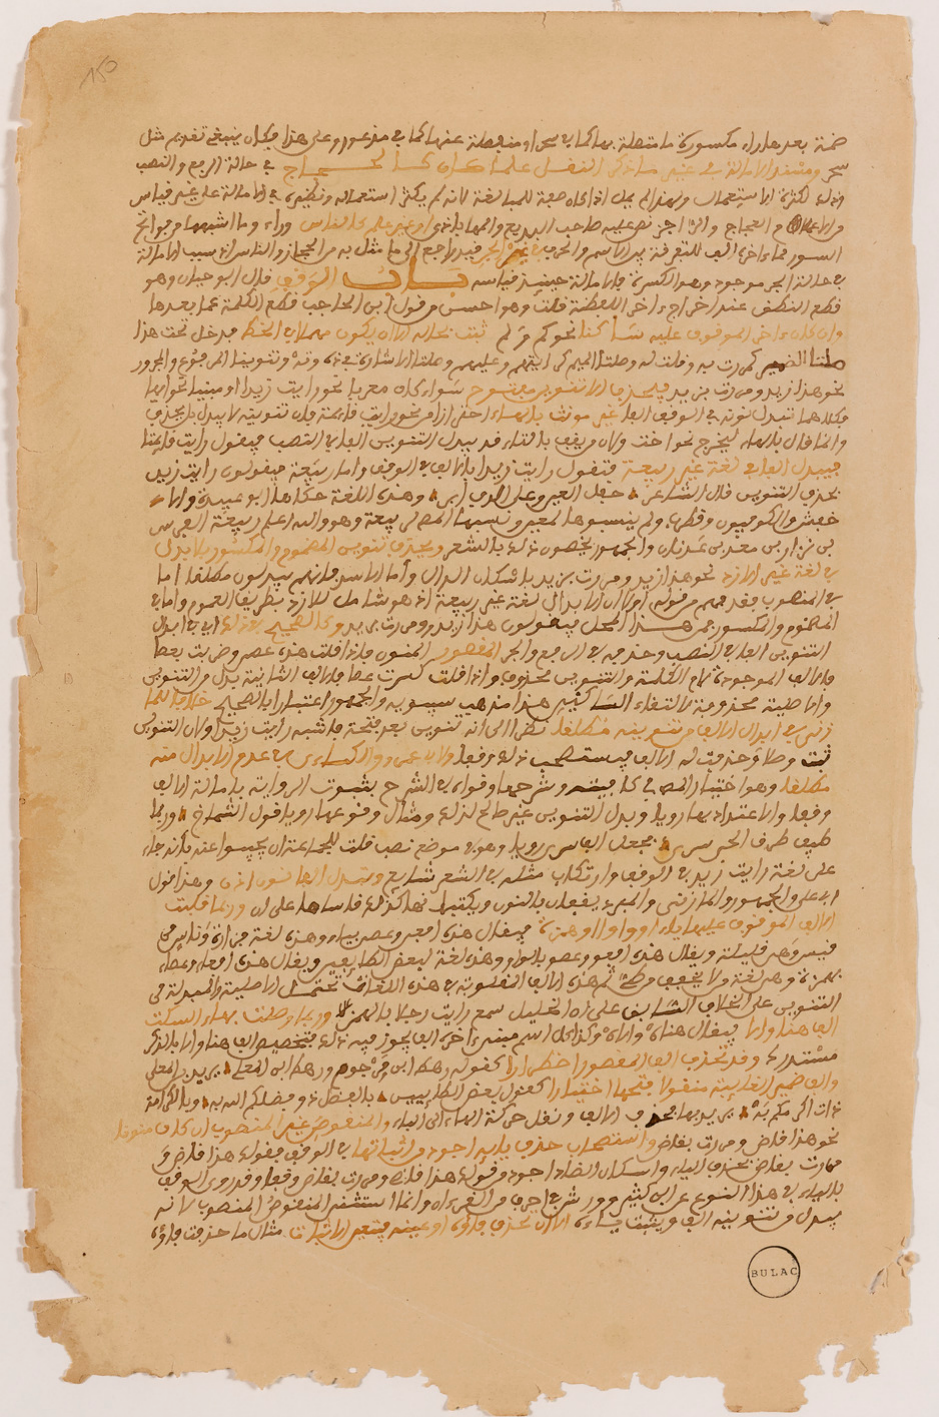 150
ضمة بعدها راء مكسورة ما متصلة بها كما في سمر او منفصلة عنها كما في مذعور وعلى هذا فكان ينبغي تقديم مثل
سمر ومنفذ الامالة في غير ماذكر النقل علما كان كالحجاج في حالة الرفع والنصب
وذلك لكثرة الاستعمال
السور مما اخره الف للتفرقة بين الاسم والحرف في غير الجر فيه راجع الى ما مثل به من الحجاج والناس لان سبب الامالة
في حالة الجر موجود وهو الكسرة فالامالة حينئذ قياسه باب الوقف قال ابو حيان وهو
قطع النطق عند اخراج اخر اللفظة قلت وهو احسن من قول ابن الحاجب قطع الكلمة عما بعدها
وان كان اخر الموقوف عليه ساكنا نحو كم ولم ثبت بحاله الا ان يكون مهملا في الخط فيدخل تحت هذا
نحو هذا زيد ومررت بزيد فيحذف الا تنوين مفتوح سواء كان معربا نحو رايت زيدا او مبنيا نحو ايها
فكلاهما تبدل نونه في الوقف الفا غير مونث بالهاء احترازا من نحو رايت قائمة فان تنوينه لا يبدل بل يحذف
وانما قال بالهاء ليخرج نحو اخت ولان من يقف بالتاء قد يبدل التنوين الفا في النصب فيقول رايت قائمتا
فيبدل الفا في لغة غير ربيعة فتقول رايت زيدا بالالف في الوقف واما ربيعة فيقولون رايت زيد
بحذف التنوين قال الشاعر جعل القين على الدف ابر وهذه اللغة حكاها ابو عبيدة والا
خفش والكوفيون وقطرب ولم ينسبوها لمعين ونسبها المص لربيعة وهو والله اعلم ربيعة الفرس
بن نزار بن معد بن عدنان والجمهور يخصون ذلك بالشعر ويحذف تنوين المضموم والمكسور بلا بدل
في لغة غير الازد نحو هذا زيد ومررت بزيد باسكان الدال واما الاسد فانهم يبدلون مطلقا اما
في المنصوب فقد فهم من قوله اولا ان الابدال لغة غير ربيعة اذ هو شامل للازد بطريق العموم واما في
المضموم والمكسور فمن هذا المحل فيقولون هذا زيدو ومررت بزيدي وكالصحيح في ذلك اي في ابدال
التنوين الفا في النصب وحذفه في الرفع والجر المقصور المنون فاذا قلت هذه عصى ومررت بعصا
فالالف الموجودة لام الكلمة والتنوين محذوف واذا قلت كسرت عصا فالالف الثانية بدل من التنوين
والاصلية محذوفة لالتقاء الساكنين هذا مذهب سيبويه والجمهور اعتبارا بالصحيح خلافا للما
زني في ابدال الالف من تنوينه مطلقا نظرا الى انه تنوين بعد فتحة فاشبه رايت زيدا ولان التنوين
ثبت وصلا وحذفت له الالف فيستصحب ذلك وقفا ولابي عمرو والكسائي في عدم الابدال منه
مطلقا وهو اختيار المص في كافيته وشرحها وقواه في الشرح بثبوت الرواية بامالة الالف
وقفا والاعتداد بها رويا وبدل التنوين غير صالح لذلك ومثال وقوعها رويا قول الشماخ وربما
ضيف طرف الحي سرى فجعل الف سرى رويا وهو في موضع نصب قلت للجماعة ان يجيبوا عنه بانه جاء
على لغة رايت زيد في الوقف وارتكاب مثله في الشعر شايع وتبدل الفا نون اذن وهذا قول
ابي علي والجمهور والمازني والمبرد يقفان بالنون ويكتبانها كذلك قياسا على لن وربما قلبت
الالف الموقوف عليها ياء او واوا او همزة فيقال هذه افعي وعصي بياء وهذه لغة فزارة وناس من
قيس وهي قليلة ويقال هذه افعو وعصو بالواو وهذه لغة لبعض الطائيين ويقال هذه افعأ وعصأ
التنوين على الخلاف السابق على ان الخليل سمع رايت رجلا بالهمز وربما وصلت بهاء السكت
الف هنا والا فيقال هناه والاه وكذا كل اسم مبني اخره الف يجوز فيه ذلك فتخصيص الف هنا والا بالذكر
مستدرك وقد تحذف الف المقصور اضطرارا كقوله رهط ابن مرجوم ورهط ابن المعل يريد المعلى
والف ضمير الغائبة منقولا فتحها اختيارا كقول بعض الطائيين بالفضل ذو فضلكم الله به وبالكرامة
ذات اكرمكم به يريد بها فحذف الالف ونقل حركة الهاء الى الباء والمنقوص غير المنصوب ان كان منونا
نحو هذا قاض ومررت بقاض فاستصحاب حذف يائه اجود من اثباتها في الوقف فقولك هذا قاض و
مررت بقاض بحذف الياء واسكان الضاد اجود من قولك هذا قاضي ومررت بقاضي وقفا وقد روي الوقف
بالياء في هذا النوع عن ابن كثير وورش في احرف من القرءان وانما استثني المنقوص المنصوب لانه
يبدل من تنوينه الف ويثبت ياءه الا ان تحذف فاؤه او عينه فتعين الاثبات مثال ما حذفت فاؤه
BULAC